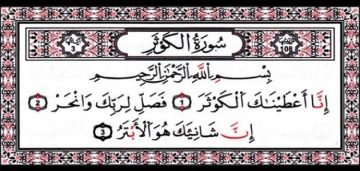 سُورَةُ الكَوْثَر
بِسْمِ اللَّهِ الرَّحْمَٰنِ الرَّحِيمِ
إِنَّا أَعْطَيْنَاكَ الْكَوْثَرَ 1 فَصَلِّ لِرَبِّكَ وَانْحَرْ 2
إِنَّ شَانِئَكَ هُوَ الْأَبْتَرُ 3